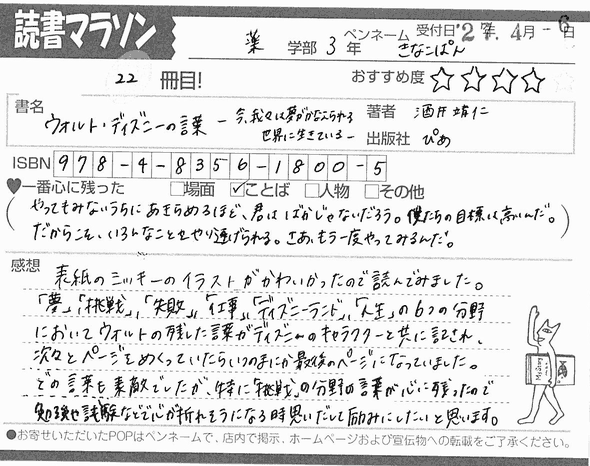 読書マラソン
薬 学部 3 年 ペンネーム きなこぱん 受付日 '27. 4月 -6日
22 冊目! おすすめ度 ☆☆☆☆
書名 ウォルト・ディズニーの言葉 - 今、我々は夢がかなえられる
世界に生きている -
著者 酒井靖仁
出版社 ぴあ
ISBN 978-4-8356-1800-5
♥一番心に残った □場面 ☑ことば □人物 □その他
(やってもみないうちにあきらめるほど、君はばかじゃないだろう。僕たちの目標は高いんだ。
だからこそ、いろんなことをやり遂げられる。さあ、もう一度やってみるんだ。)
感想 表紙のミッキーのイラストがかわいかったので読んでみました。
「夢」、「挑戦」、「失敗」、「仕事」、「ディズニーランド」、「人生」の6つの分野
においてウォルトの残した言葉がディズニーのキャラクターと共に記され、
次々とページをめくっていたらいつのまにか最後のページになっていました。
どの言葉も素敵でしたが、特に「挑戦」の分野の言葉が心に残ったので
勉強や試験などで心が折れそうになる時思いだして励みにしたいと思います。
●お寄せいただいたPOPはペンネームで、店内で掲示、ホームページおよび宣伝物への転載をご了承ください。